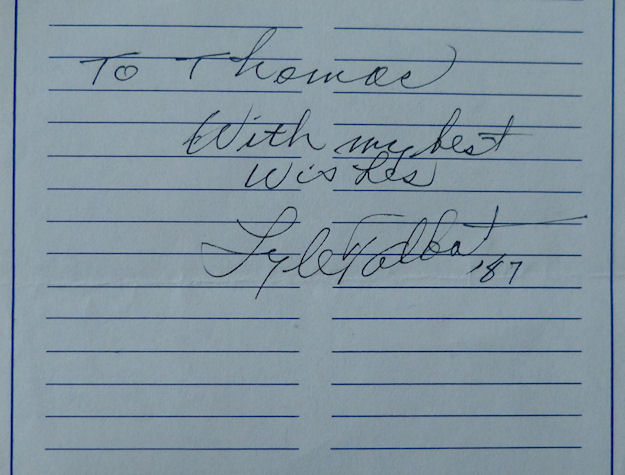 To Thomas
With my best
Wishes
Lyle Talbot
'87